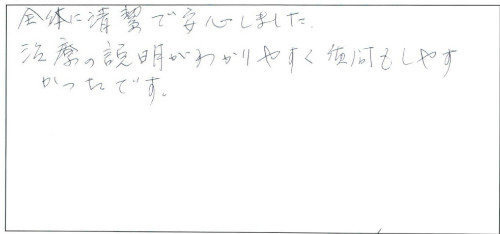 全体に清潔で安心しました.
治療の説明がわかりやすく質問もしやす
かったです。